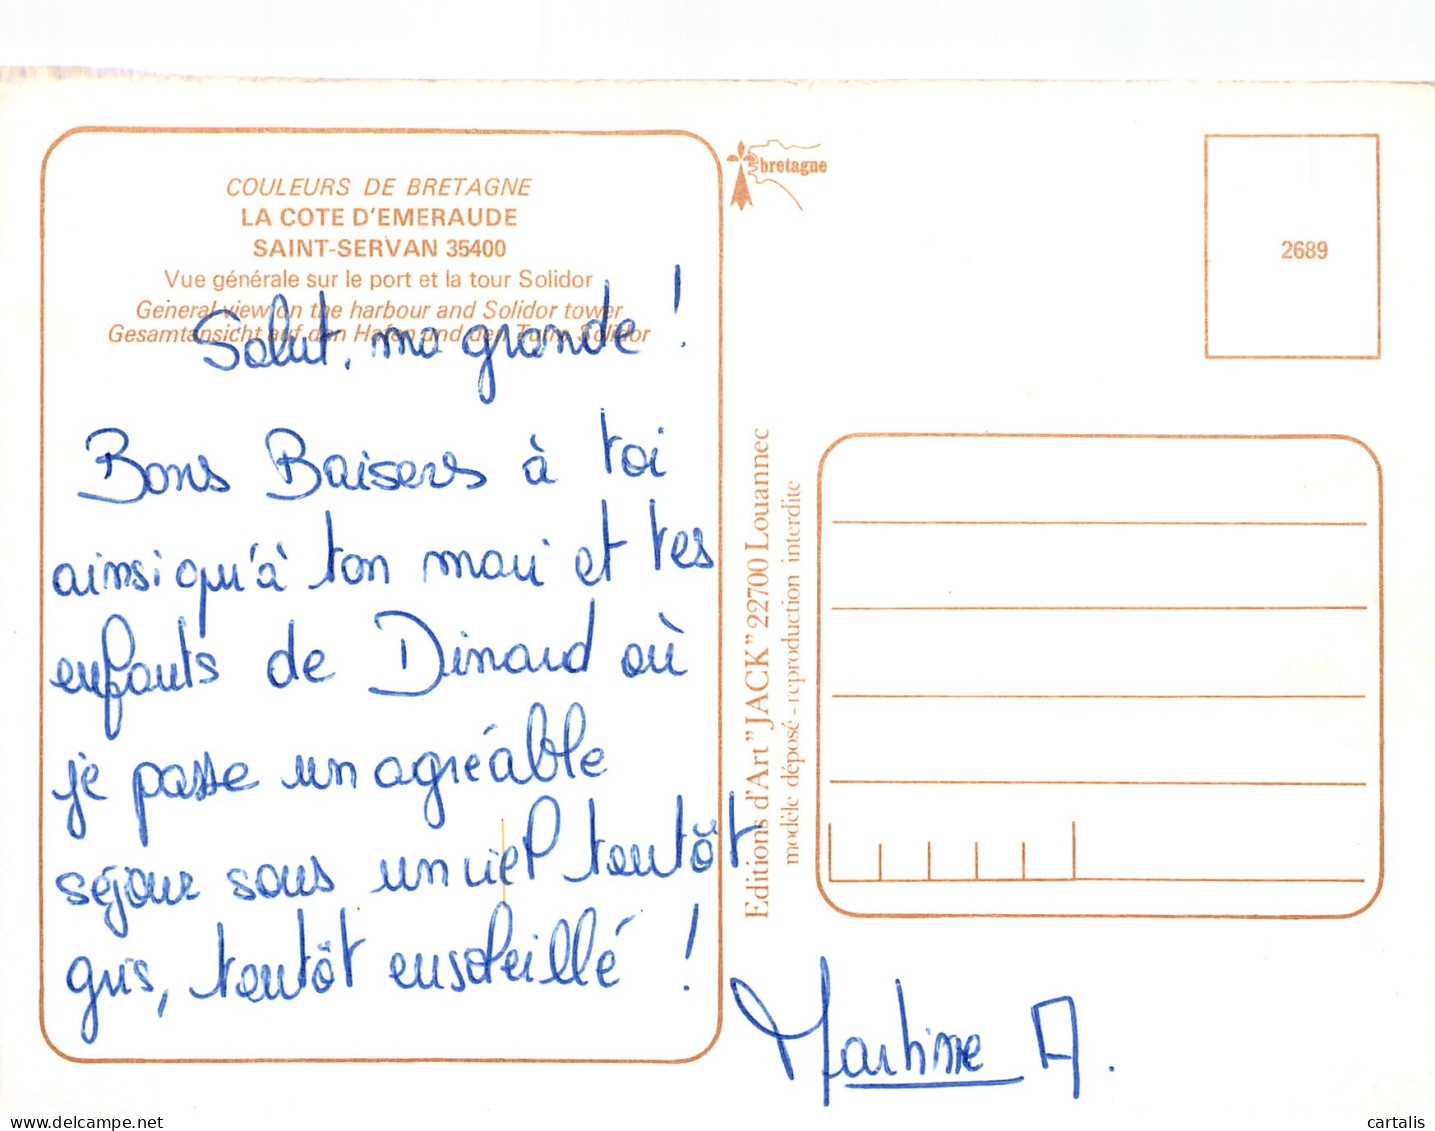 COULEURS DE BRETAGNE
LA COTE D'EMERAUDE
SAINT-SERVAN 35400
Vue générale sur le port et la tour Solidor
General view on the harbour and Solidor tower
Gesamtansicht auf den Hafen und den Turm Solidor
Salut, ma grande !
Bons Baisers à toi
ainsi qu'à ton mari et tes
enfants de Dinard où
je passe un agréable
séjour sous un ciel tantôt
gris, tantôt ensoleillé !
Martine A.
bretagne
2689
Editions d'Art "JACK" 22700 Louannec
modèle déposé - reproduction interdite
delcampe.net
cartalis